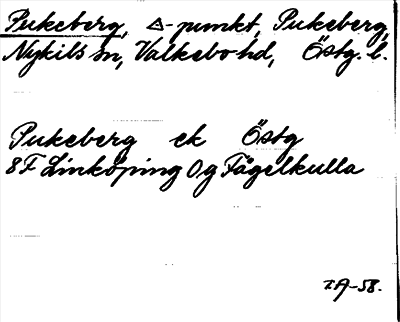 Pukeberg, △-punkt, Pukeberg,
Nykils sn, Valkebo hd, Östg. l.
Pukeberg ek Östg
8F Linköping 0g Fågelkulla
I.A-58.